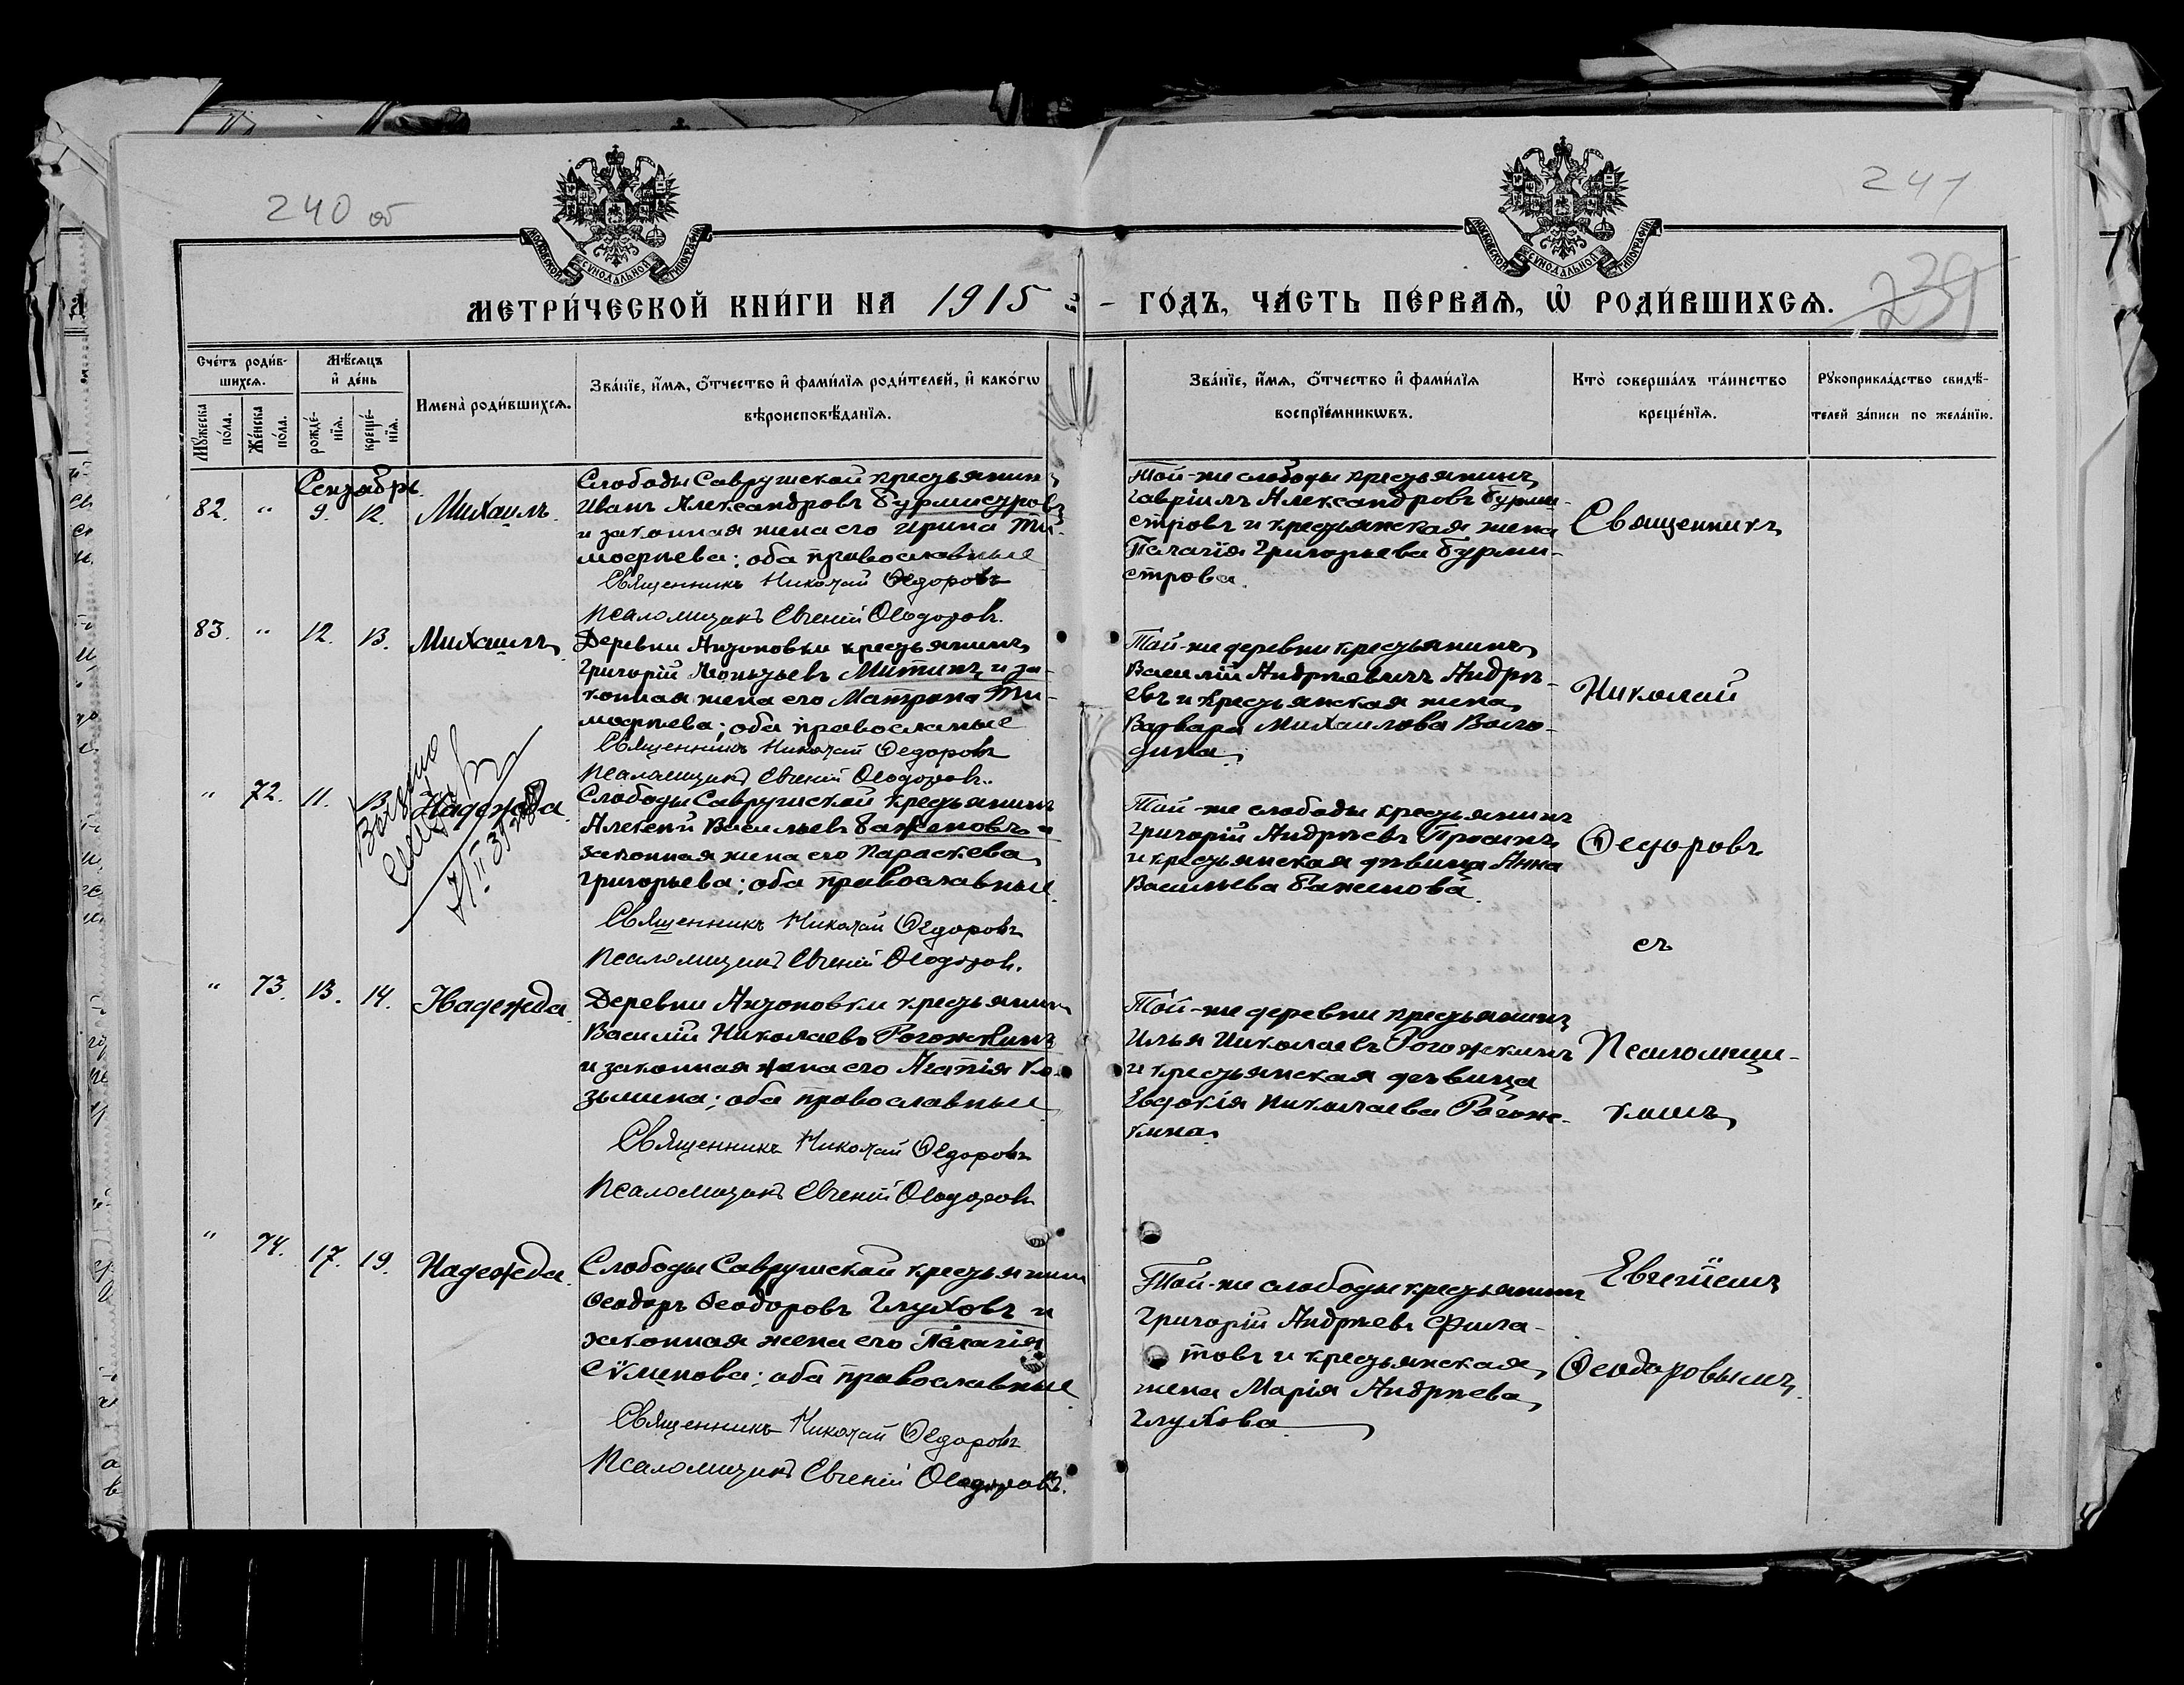 240 об
241
239
МОСКОВСКОЙ СѴНОДАЛЬНОЙ ТИПОГРАФІИ
МОСКОВСКОЙ СѴНОДАЛЬНОЙ ТИПОГРАФІИ
МЕТРИ́ЧЕСКОЙ КНИ́ГИ НА 1915 - ГО́ДЪ, ЧА́СТЬ ПЕ́РВАѦ, Ѡ҆ РОДИ́ВШИХСѦ.
Сче́тъ роди́в-
шихсѧ.
Мѣ́сѧцъ
и҆ де́нь
Мꙋ́жеска
по́ла.
Же́нска
по́ла.
рожде́-
нїѧ.
креще́-
нїѧ.
Имена̀ роди́вшихсѧ.
Зва́нїе, и҆́мѧ, ѻ҆́тчество и҆ фами́лїѧ роди́телей, и҆ како́гѡ
вѣроисповѣ́данїѧ.
Зва́нїе, и҆́мѧ, ѻ҆́тчество и҆ фами́лїѧ
воспрїе́мникѡвъ.
Кто̀ соверша́лъ та́инство
креще́нїѧ.
Рꙋкоприкла́дство свидѣ́-
телей за́писи по жела́нїю.
Сентябрь.
82. " 9. 12. Михаилъ.
Слободы Саврушской крестьянинъ
Иванъ Александровъ Бурмистровъ
и законная жена его Ирина Ти-
моѳеева; оба православные
Священникъ Николай Ѳедоровъ
Псаломщикъ Евгеній Ѳеодоровъ.
Той-же слободы крестьянинъ
Гавріилъ Александровъ Бурми-
стровъ и крестьянская жена
Пелагія Григорьева Бурми-
строва.
83. " 12. 13. Михаилъ
Деревни Антоновки крестьянинъ
Григорій Леонтьевъ Митинъ и за-
конная жена его Матрона Ти-
моѳеева; оба православные
Священникъ Николай Ѳедоровъ
Псаломщикъ Евгеній Ѳеодоровъ.
Той-же деревни крестьянинъ
Василій Андреевичъ Андре-
евъ и крестьянская жена
Варвара Михаилова Воло-
дина
" 72. 11. 13. Надежда.
Слободы Саврушской крестьянинъ
Алексѣй Васильевъ Баженовъ и
законная жена его Параскева
Григорьева; оба православные.
Священникъ Николай Ѳедоровъ
Псаломщикъ Евгеній Ѳеодоровъ.
Той-же слободы крестьянинъ
Григорій Андреевъ
и крестьянская дѣвица Анна
Васильева Баженова.
" 73. 13. 14. Надежда.
Деревни Антоновки крестьянинъ
Василій Николаевъ Рогожкинъ
и законная жена его Агапія Ко-
зьмина; оба православные
Священникъ Николай Ѳедоровъ
Псаломщикъ Евгеній Ѳеодоровъ
Той-же деревни крестьянинъ
Илья Николаевъ Рогожкинъ
и крестьянская дѣвица
Евдокія Николаева Рогож-
кина
" 74. 17. 19. Надежда.
Слободы Саврушской крестьянинъ
Ѳеодоръ Ѳеодоровъ Глуховъ и
законная жена его Пелагія
Сѵменова; оба православные
Священникъ Николай Ѳедоровъ
Псаломщикъ Евгеній Ѳеодоровъ.
Той-же слободы крестьянинъ
Григорій Андреевъ Фила-
товъ и крестьянская
жена Марія Андреева
Глухова
Священникъ
Николай
Ѳедоровъ
съ
Псаломщи-
комъ
Евгеніемъ
Ѳеодоровымъ.